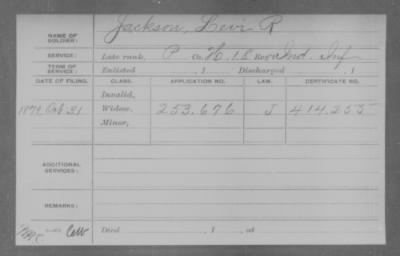 Jackson, Levi R
NAME OF SOLDIER:
SERVICE: Late rank, P Co. H, 18 Reg't Ind. Inf
TERM OF SERVICE: Enlisted , 1 Discharged , 1
DATE OF FILING. CLASS. APPLICATION NO. LAW. CERTIFICATE NO.
Invalid,
1879 Oct 31 Widow, 253.676 J 414.255
Minor,
ADDITIONAL SERVICES:
REMARKS:
Died , 1 , at